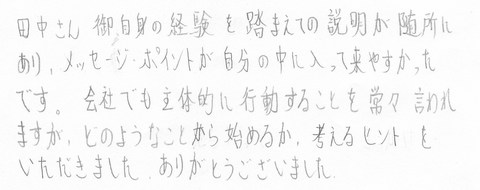 田中さん御自身の経験を踏まえての説明が随所に
あり、メッセージ・ポイントが自分の中に入って来やすかった
です。会社でも主体的に行動することを常々言われ
ますが、どのようなことから始めるか、考えるヒントを
いただきました。ありがとうございました。